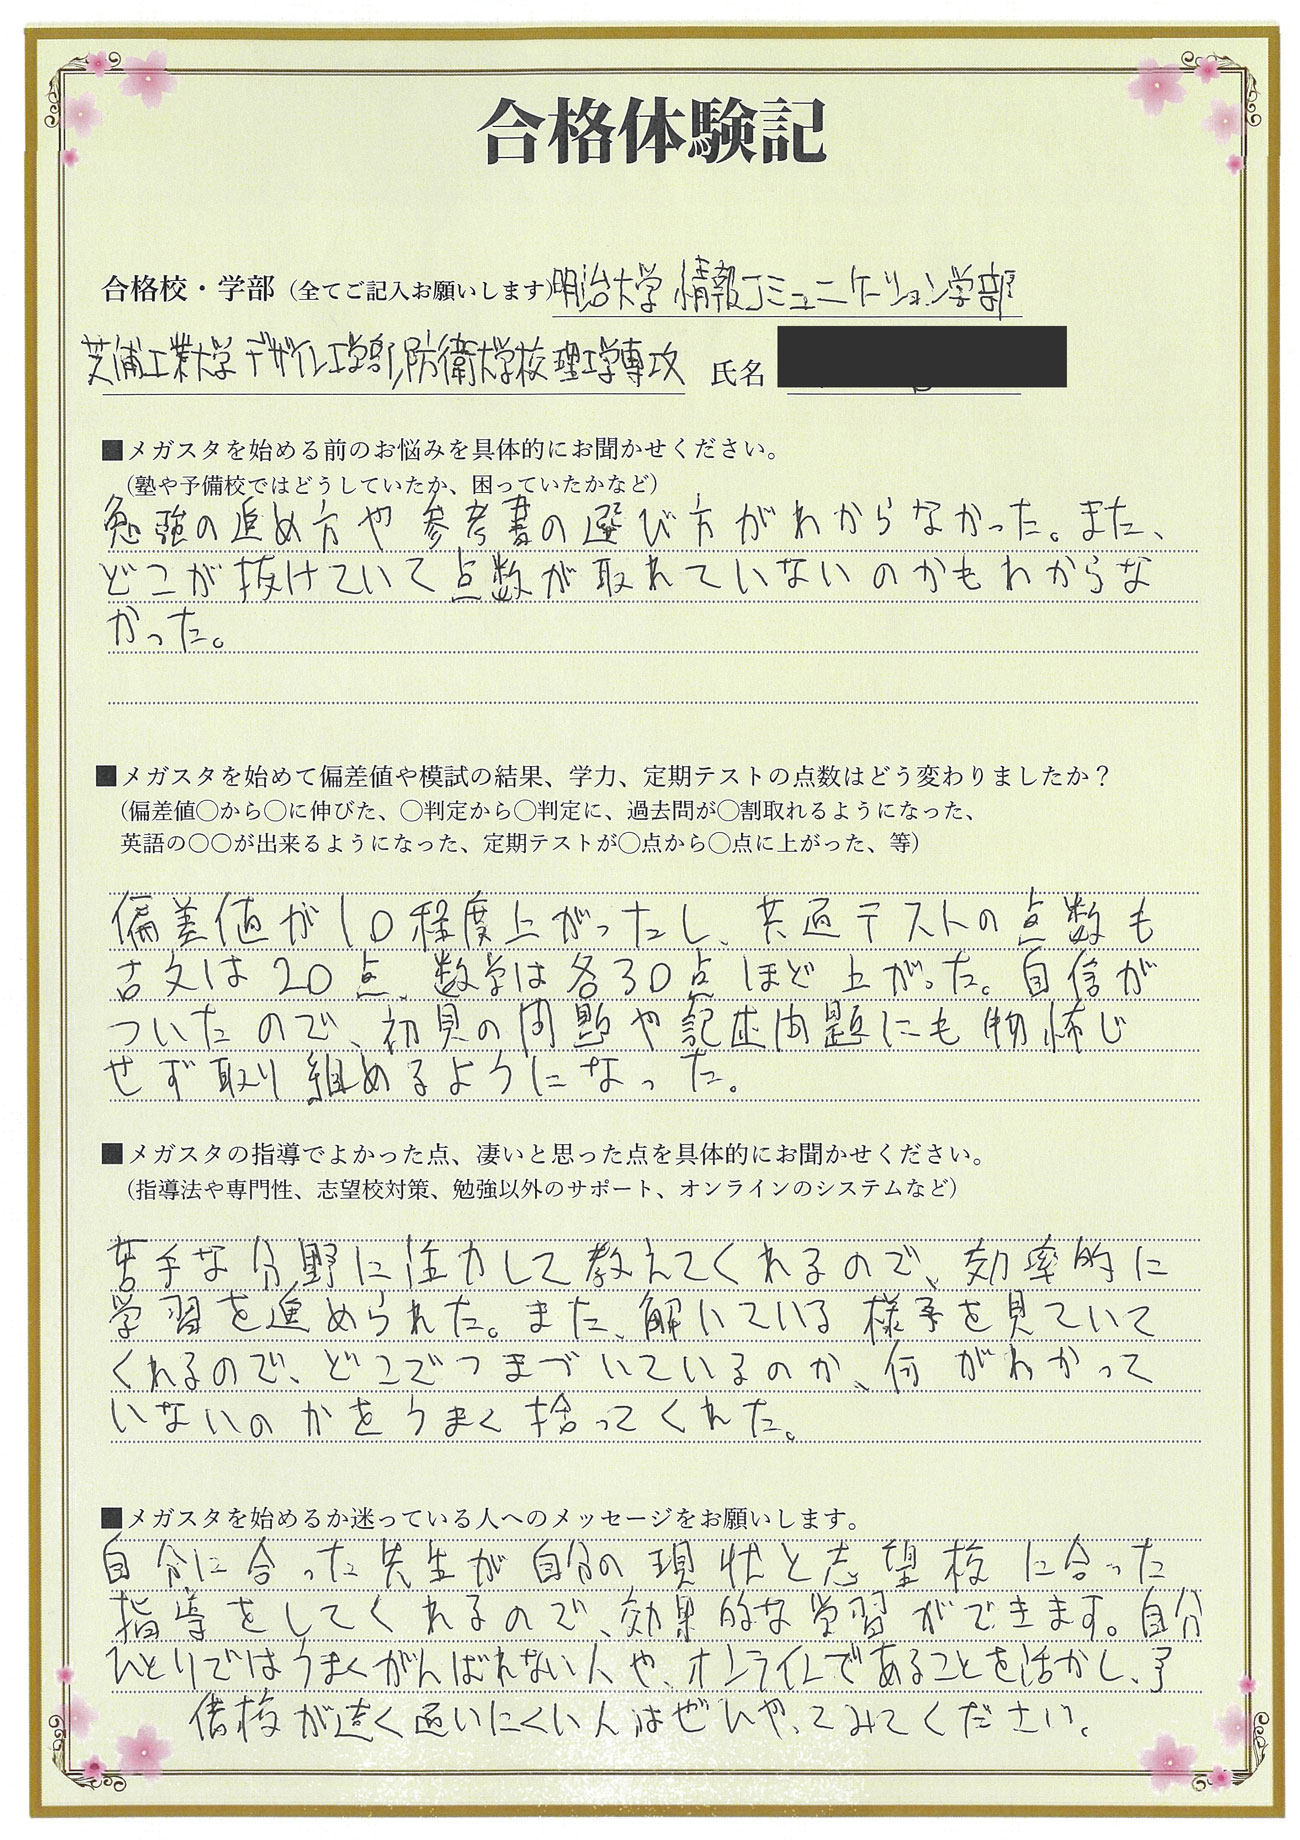 合格体験記
合格校・学部(全てご記入お願いします)明治大学 情報コミュニケーション学部
芝浦工業大学 デザイン工学部,防衛大学校 理工学専攻 氏名
■メガスタを始める前のお悩みを具体的にお聞かせください。
(塾や予備校ではどうしていたか、困っていたかなど)
勉強の進め方や参考書の選び方がわからなかった。また、
どこが抜けていて点数が取れていないのかもわからな
かった。
■メガスタを始めて偏差値や模試の結果、学力、定期テストの点数はどう変わりましたか?
(偏差値○から○に伸びた、○判定から○判定に、過去問が○割取れるようになった、
英語の○○が出来るようになった、定期テストが○点から○点に上がった、等)
偏差値が10程度上がったし、共通テストの点数も
古文は20点、数学は各30点ほど上がった。自信が
ついたので、初見の問題や記述問題にも物怖じ
せず取り組めるようになった。
■メガスタの指導でよかった点、凄いと思った点を具体的にお聞かせください。
(指導法や専門性、志望校対策、勉強以外のサポート、オンラインのシステムなど)
苦手な分野に注力して教えてくれるので、効率的に
学習を進められた。また、解いている様子を見ていて
くれるので、どこでつまづいているのか、何がわかって
いないのかをうまく拾ってくれた。
■メガスタを始めるか迷っている人へのメッセージをお願いします。
自分に合った先生が自分の現状と志望校に合った
指導をしてくれるので、効果的な学習ができます。自分
ひとりではうまくがんばれない人や、オンラインであることを活かし、予
備校が遠く通いにくい人はぜひやってみてください。